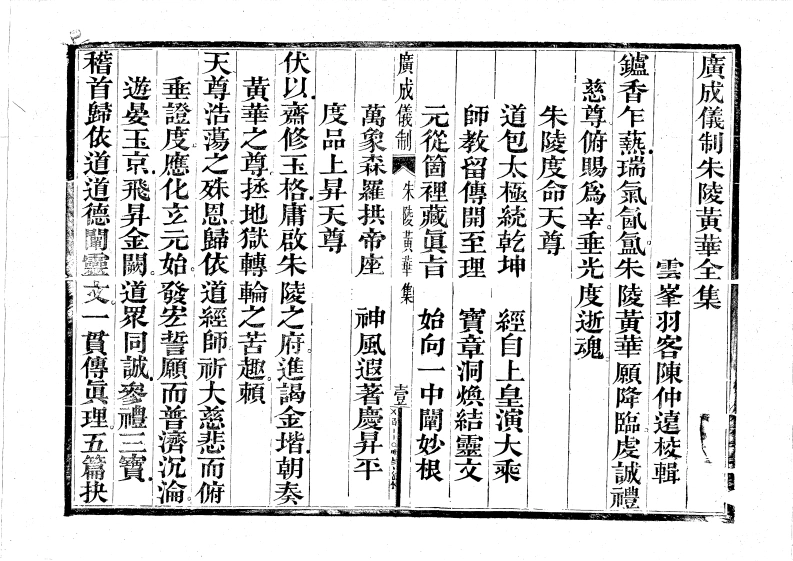 廣成儀制朱陵黃華全集
雲峯羽客陳仲遠校輯
鑪香乍爇瑞氣氤氳朱陵黃華願降臨虔誠禮
慈尊俯賜爲幸垂光度逝魂
朱陵度命天尊
道包太極統乾坤 經自上皇演大乘
師教留傳開至理 寶章洞煥結靈文
元從箇裡藏眞旨 始向一中闡妙根
廣成儀制 朱陵黃華集 壹
萬象森羅拱帝座 神風遐著慶昇平
度品上昇天尊
伏以齋修玉格庸啟朱陵之府進謁金堦朝奏
黃華之尊拯地獄轉輪之苦趣賴
天尊浩蕩之殊恩歸依道經師祈大慈悲而俯
垂證度應化立元始發宏誓願而普濟沉淪
遊晏玉京飛昇金闕道眾同誠參禮三寶
稽首歸依道道德闡靈文一貫傳眞理五篇抉